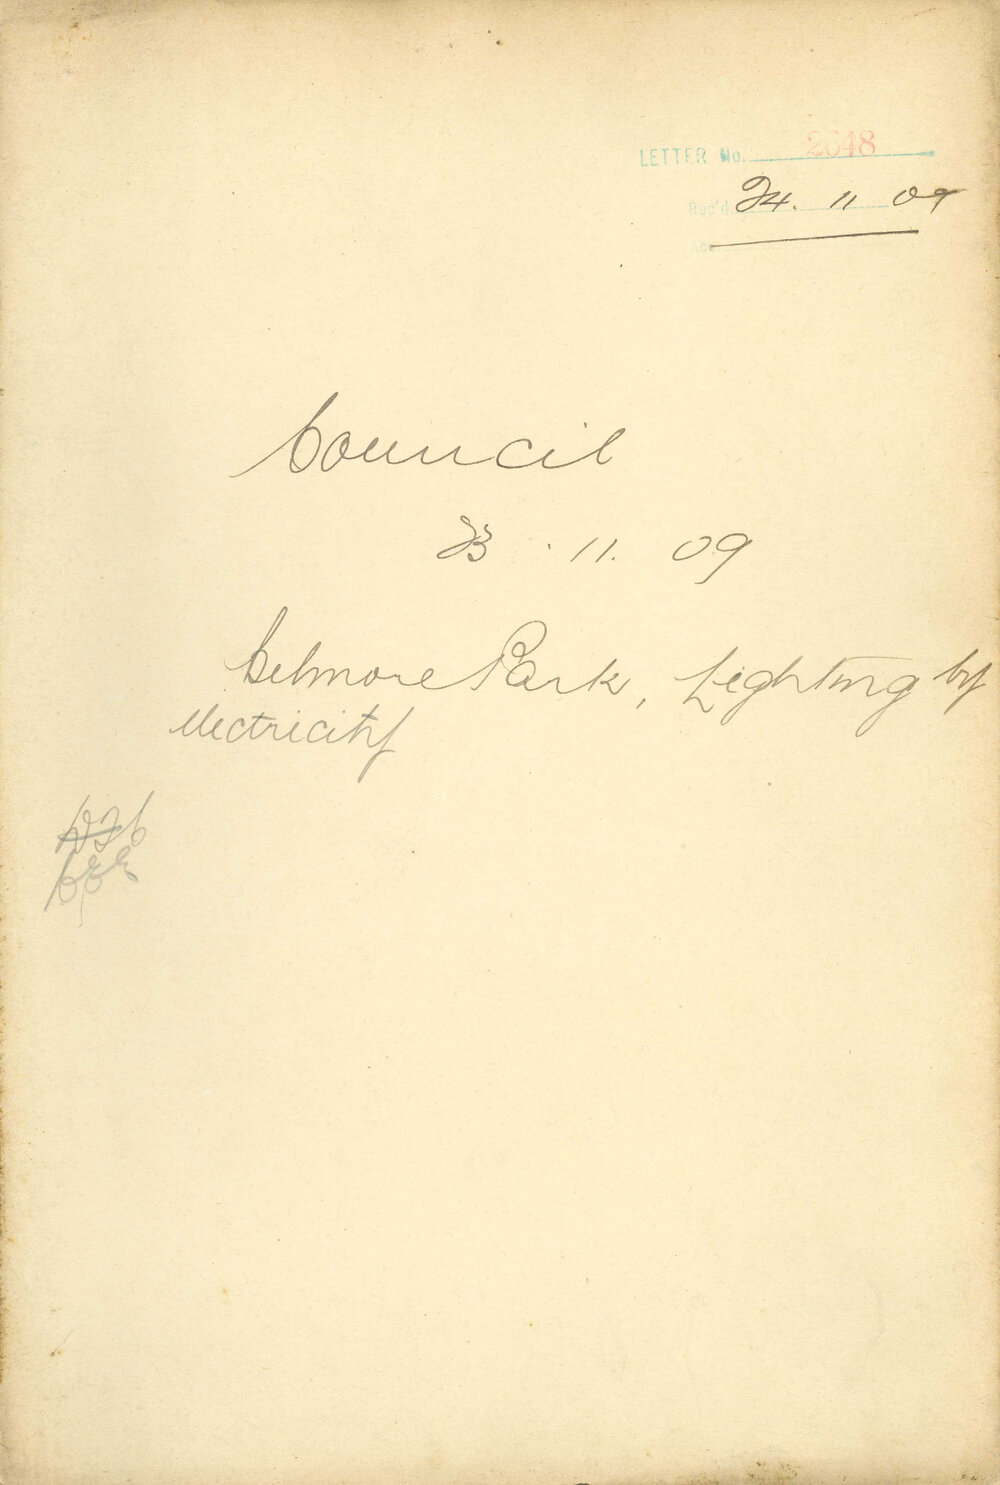 LETTER No. 2648
Rec'd 24. 11 09
Council
23 . 11. 09
Belmore Park, Lighting by
electricity